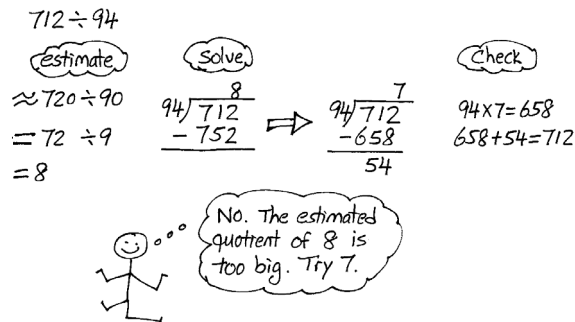 712 ÷ 94
estimate
≈ 720 ÷ 90
= 72 ÷ 9
= 8
Solve
8
94 712
- 752
⇒
7
94 712
-658
54
Check
94 x 7 = 658
658 + 54 = 712
No. The estimated
quotient of 8 is
too big. Try 7.